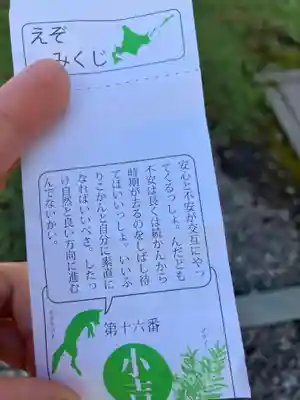 えぞ
みくじ
安心と不安が交互にやっ
てくるっしょ。んだども
不安は長くは続かんから
時期が去るのをしばし待
てばいいっしょ。いいふ
りこかんと自分に素直に
なればいいべさ。したっ
け自然と良い方向に進む
んでないかい。
第十六番
小吉